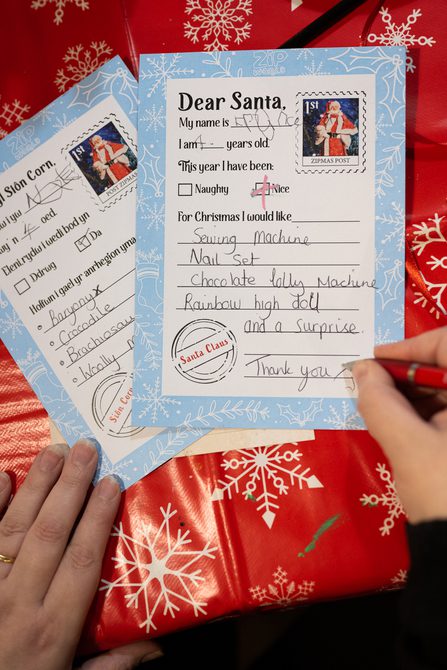 Dear Santa,
My name is
I am years old.
This year I have been:
Naughty Nice
For Christmas I would like
Sewing Machine
Nail Set
Chocolate lolly Machine
Rainbow high doll
and a Surprise
Thank you
Santa Claus
1st
ZIPMAS POST
ZIP WORLD
Siôn Corn,
oed.
Eleni rydw i wedi bod yn
Ddrwg Da
Hoffwn i gael yr anrhegion yma
Baryonyx
Crocodile
Brachiosau
Woolly M
Siôn Corn
1st
ZIPMAS POST
ZIP